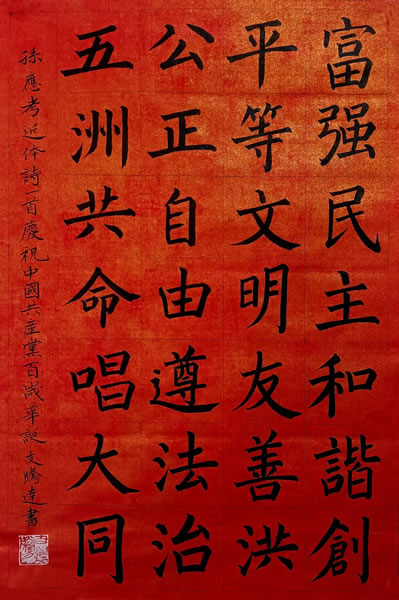 富强民主和諧創
平等文明友善洪
公正自由遵法治
五洲共命唱大同
孫應考近体詩一首慶祝中國共産黨百歲華誕支騰達書